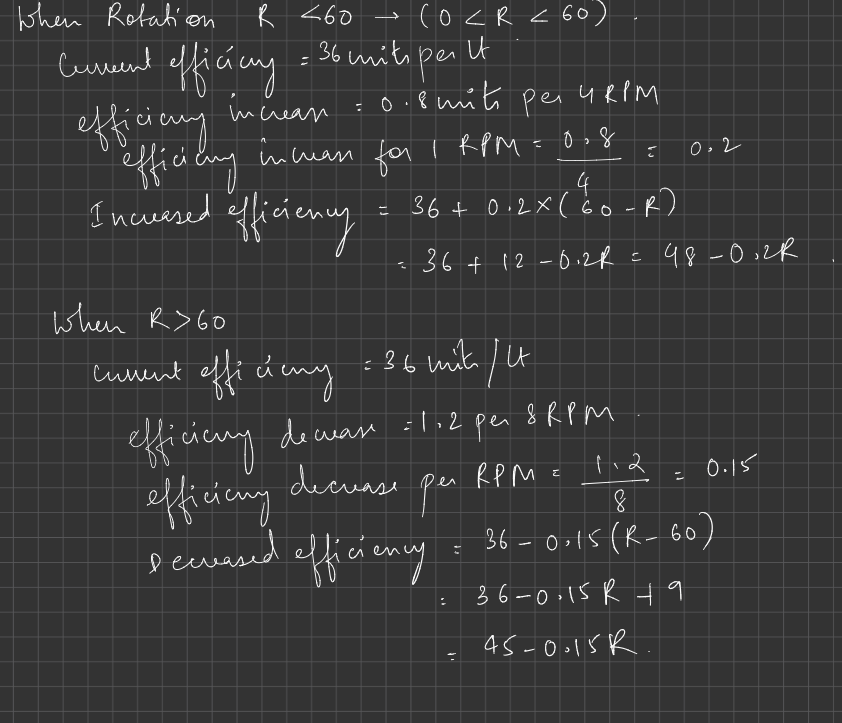 When Rotation R <60 → (0 < R < 60).
Current efficiency = 36 units per lt.
efficiency increase = 0.8 units per 4 RPM
efficiency increase for 1 RPM = 0.8/4 = 0.2
Increased efficiency = 36 + 0.2×(60-R)
= 36 + 12 - 0.2R = 48 - 0.2R.
When R>60
current efficiency = 36 units/lt
efficiency decrease = 1.2 per 8 RPM.
efficiency decrease per RPM = 1.2/8 = 0.15
Decreased efficiency = 36 - 0.15(R-60)
= 36-0.15R + 9
= 45-0.15R.